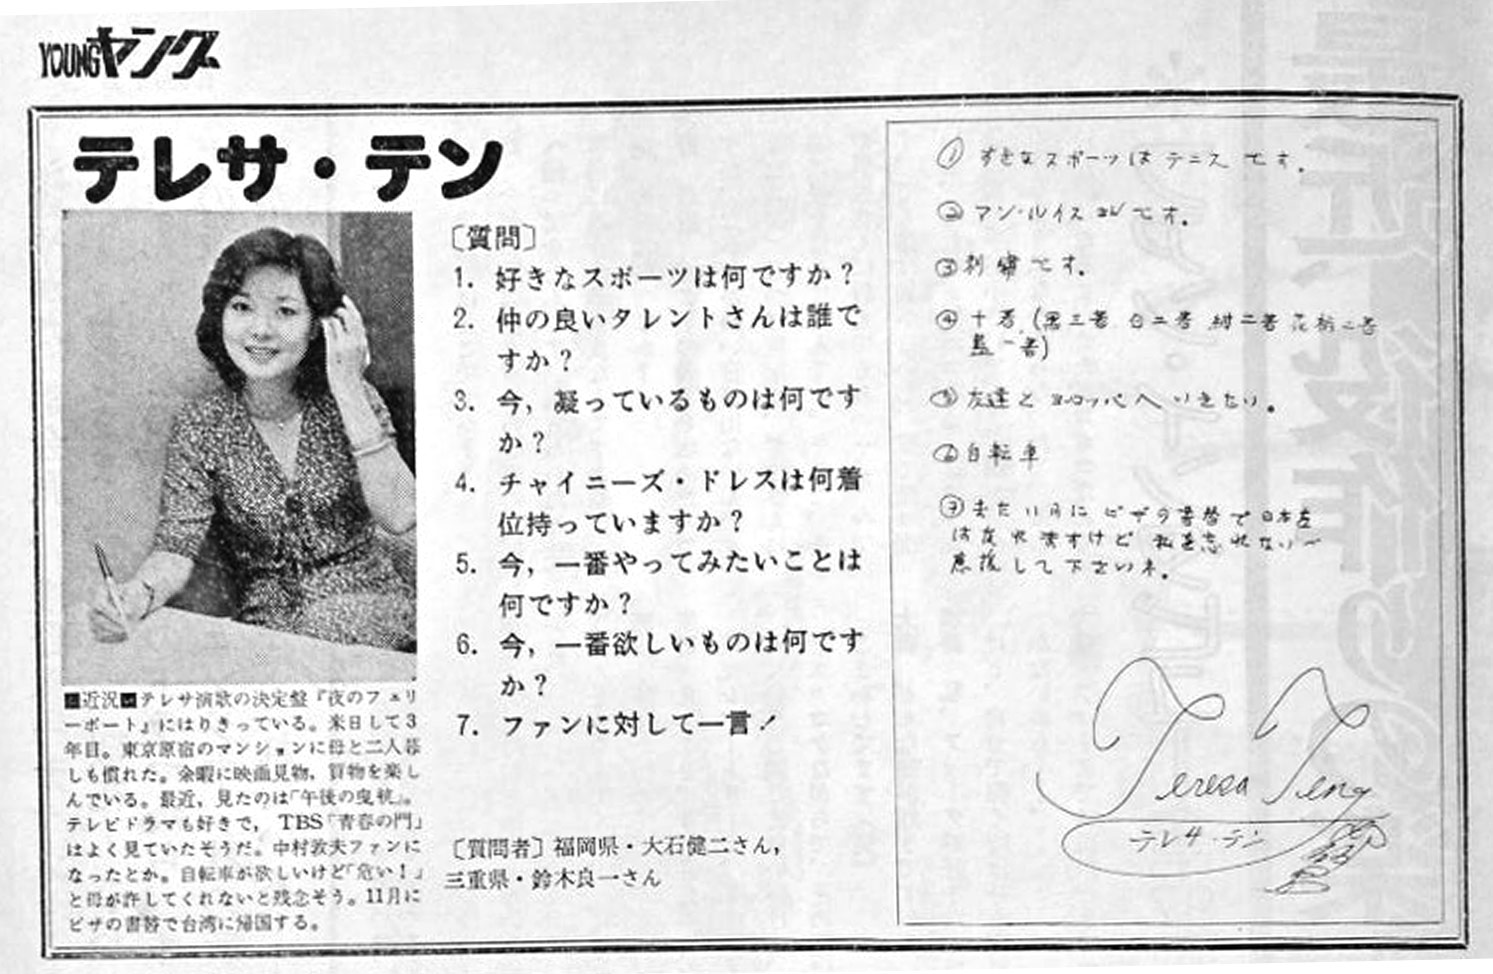 YOUNGヤング
テレサ・テン
■近況■テレサ演歌の決定盤『夜のフェリ
ーボート』にはりきっている。来日して3
年目。東京原宿のマンションに母と二人暮
しも慣れた。余暇に映画見物、買物を楽し
んでいる。最近、見たのは「午後の曳航」。
テレビドラマも好きで、TBS「青春の門」
はよく見ていたそうだ。中村敦夫ファンに
なったとか。自転車が欲しいけど「危い！」
と母が許してくれないと残念そう。11月に
ビザの書替で台湾に帰国する。
〔質問〕
1. 好きなスポーツは何ですか？
2. 仲の良いタレントさんは誰で
すか？
3. 今，凝っているものは何です
か？
4. チャイニーズ・ドレスは何着
位持っていますか？
5. 今，一番やってみたいことは
何ですか？
6. 今，一番欲しいものは何です
か？
7. ファンに対して一言！
〔質問者〕福岡県・大石健二さん，
三重県・鈴木良一さん
① すきなスポーツはテニスです。
② アン・ルイスさんです。
③ 刺繍です。
④ 十着(黒三着 白二着 紺二着 花柄二着
藍一着)
⑤ 友達とヨーロッパへいきたい。
⑥ 自転車
⑦ ビザの書替で日本を
はなれますけど 私を忘れないで
応援して下さいネ。
Teresa Teng
テレサ・テン